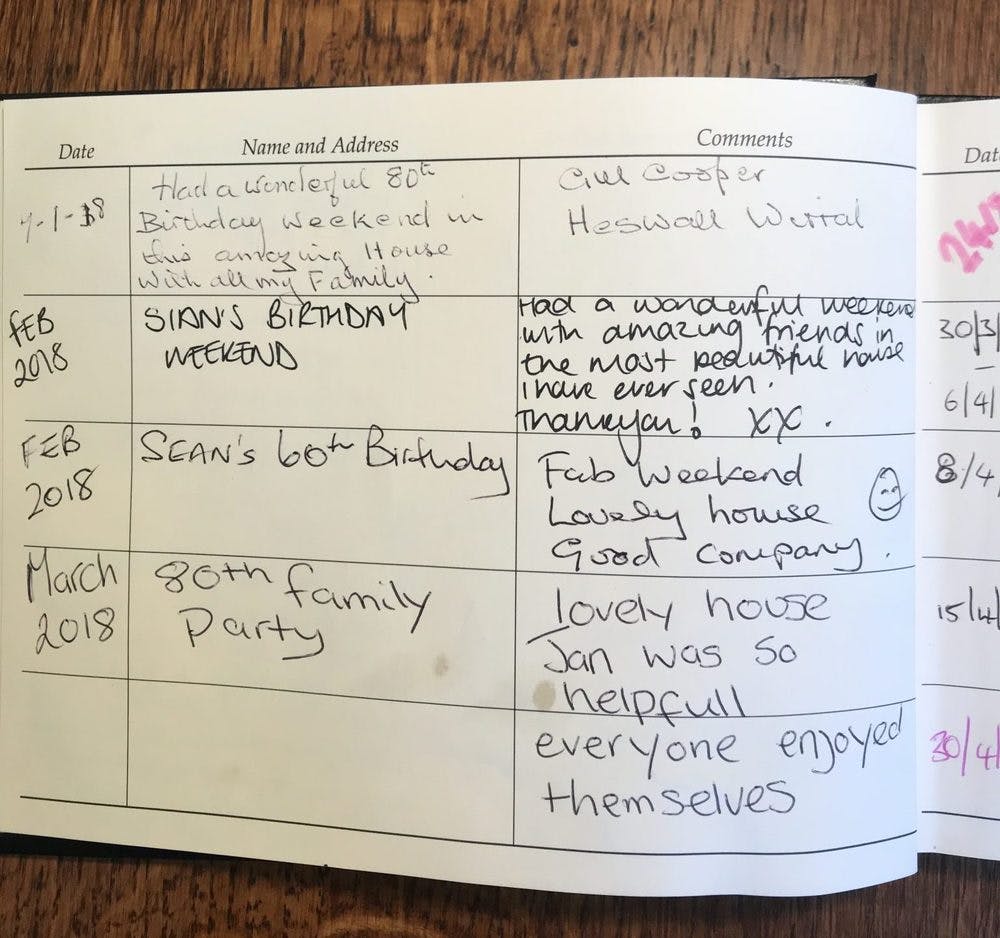 Date Name and Address Comments
7-1-18
Had a wonderful 80th
Birthday weekend in
this amazing House
With all my Family.
Gill Cooper
Heswall Wirral
FEB
2018
SIAN'S BIRTHDAY
WEEKEND
Had a wonderful weekend
with amazing friends in
the most beautiful house
i have ever seen.
Thankyou! XX.
FEB
2018
SEAN'S 60th Birthday
Fab weekend
Lovely house
Good company.
March
2018
80th family
Party
lovely house
Jan was so
helpfull
everyone enjoyed
themselves
Dat
30/3/
6/4/
8/4/
15/4/
30/4/